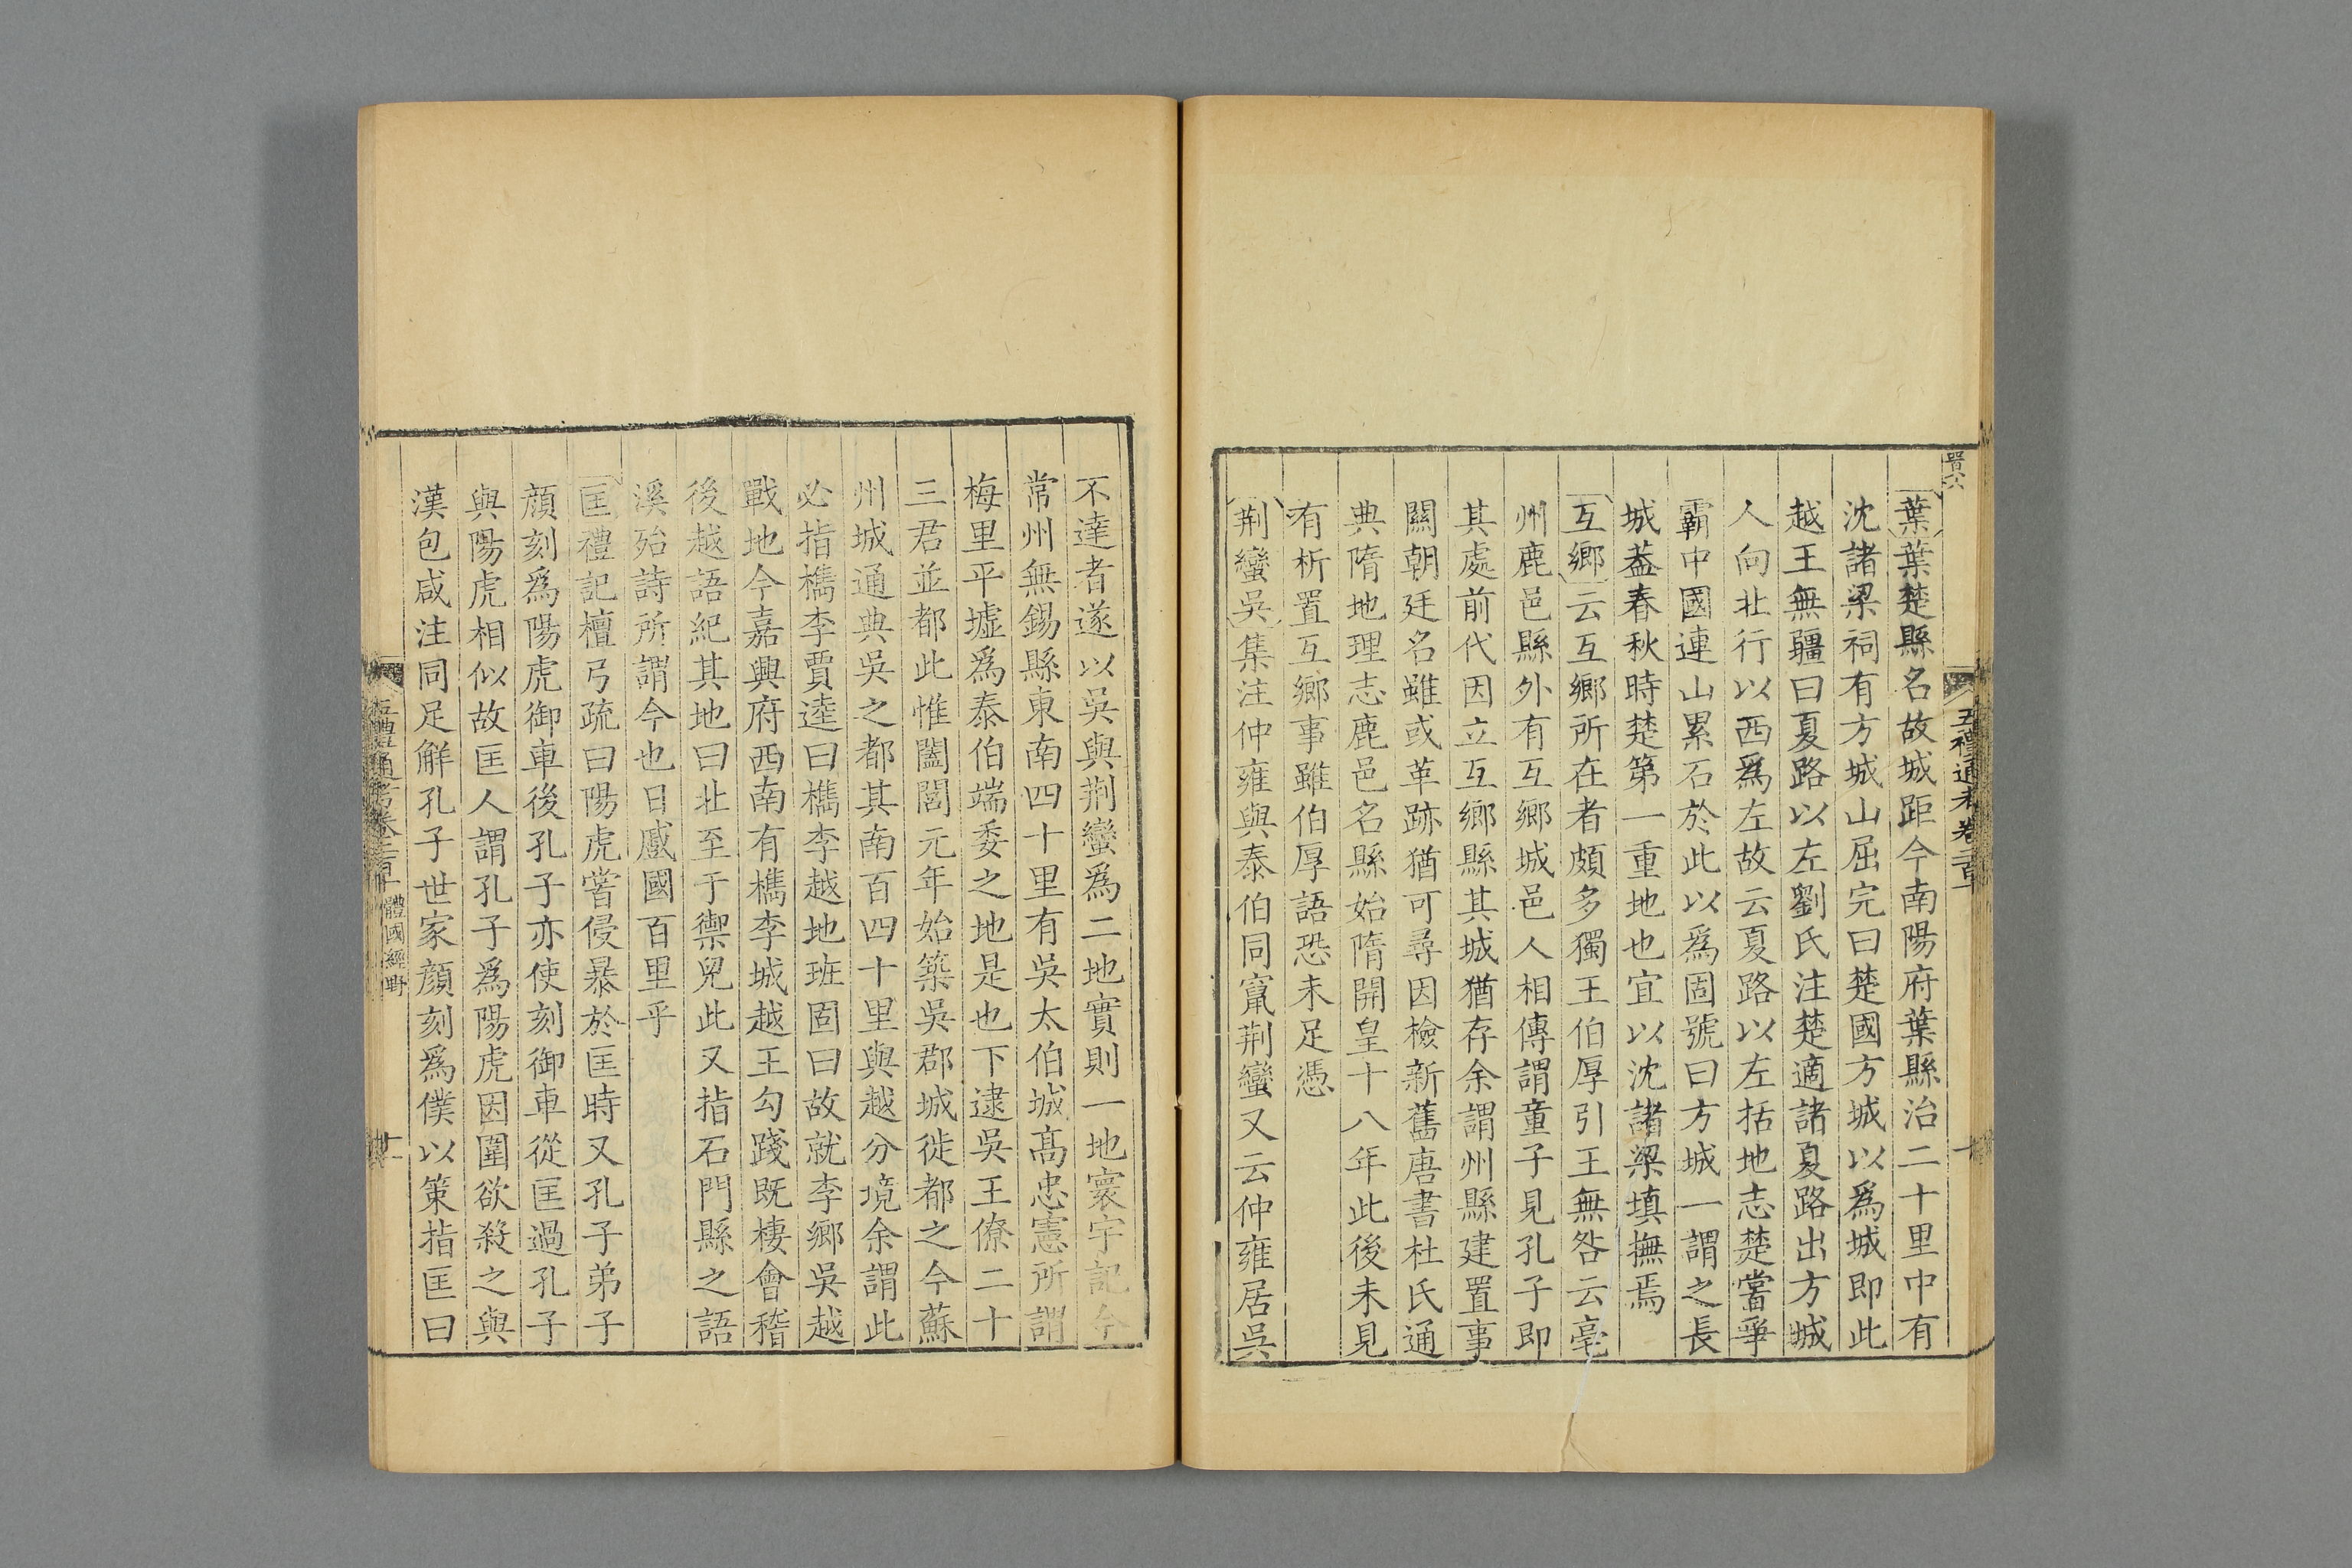 五禮通考卷二百十
葉葉楚縣名故城距今南陽府葉縣治二十里中有
沈諸梁祠有方城山屈完曰楚國方城以爲城即此
越王無疆曰夏路以左劉氏注楚適諸夏路出方城
人向北行以西爲左故云夏路以左括地志楚嘗爭
霸中國連山累石於此以爲固號曰方城一謂之長
城葢春秋時楚第一重地也宜以沈諸梁填撫焉
互鄉云互鄉所在者頗多獨王伯厚引王無咎云亳
州鹿邑縣外有互鄉城邑人相傳謂童子見孔子即
其處前代因立互鄉縣其城猶存余謂州縣建置事
關朝廷名雖或革跡猶可尋因檢新舊唐書杜氏通
典隋地理志鹿邑名縣始隋開皇十八年此後未見
有析置互鄉事雖伯厚語恐未足憑
荆蠻吳集注仲雍與泰伯同竄荆蠻又云仲雍居吳
不達者遂以吳與荆蠻爲二地實則一地寰宇記今
常州無錫縣東南四十里有吳太伯城髙忠憲所謂
梅里平墟爲泰伯端委之地是也下逮吳王僚二十
三君並都此惟闔閭元年始築吳郡城徙都之今蘇
州城通典吳之都其南百四十里與越分境余謂此
必指檇李賈逵曰檇李越地班固曰故就李鄉吳越
戰地今嘉興府西南有檇李城越王勾踐既棲會稽
後越語紀其地曰北至于禦兒此又指石門縣之語
溪殆詩所謂今也日蹙國百里乎
匡禮記檀弓疏曰陽虎嘗侵暴於匡時又孔子弟子
顏刻爲陽虎御車後孔子亦使刻御車從匡過孔子
與陽虎相似故匡人謂孔子爲陽虎因圍欲殺之與
漢包咸注同足解孔子世家顏刻爲僕以策指匡曰
五禮通考卷二百十 體國經野